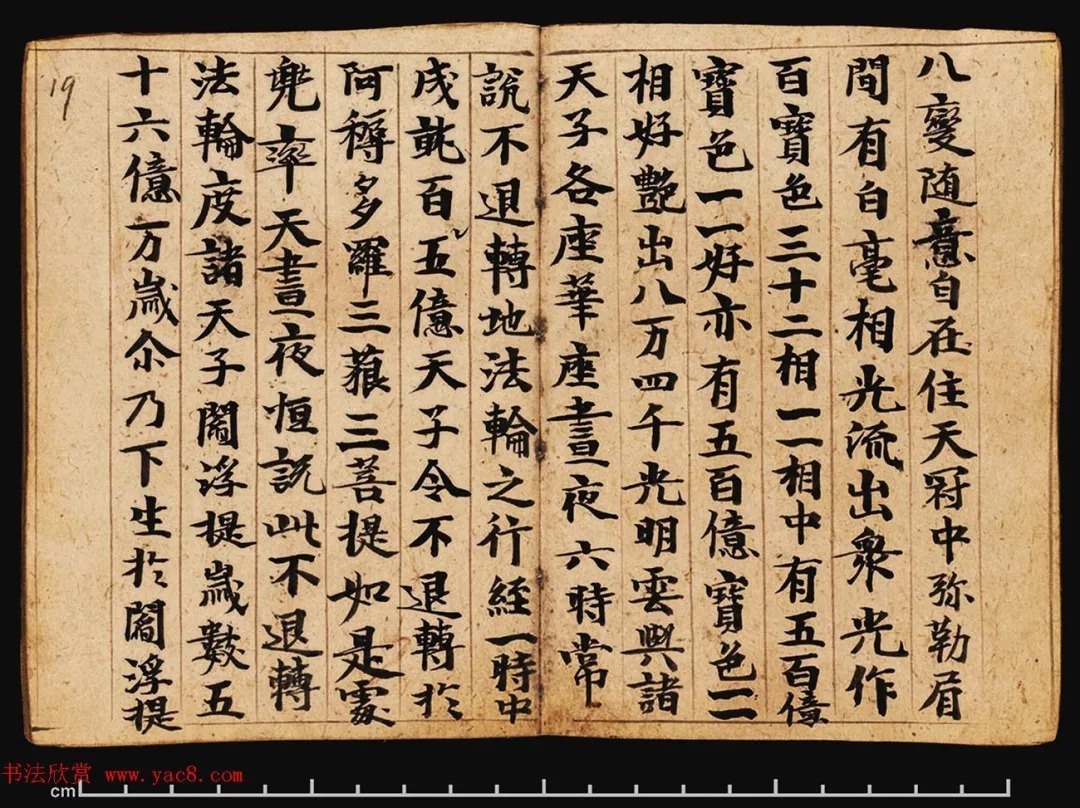 八變随意自在住天冠中弥勒眉
間有白毫相光流出衆光作
百寶色三十二相一一相中有五百億
寶色一一好亦有五百億寶色一一
相好艷出八万四千光明雲與諸
天子各座華座晝夜六時常
說不退轉地法輪之行經一時中
成就百五億天子令不退轉扵
阿耨多羅三藐三菩提如是䖏
兜率天晝夜恒說此不退轉
法輪度諸天子閻浮提歲數五
十六億万歲尒乃下生扵閻浮提
19
书法欣赏 www.yac8.com
cm